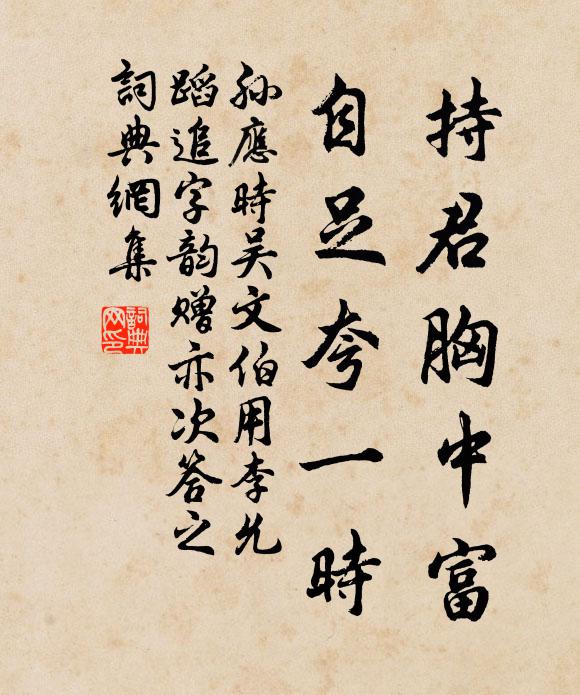 持君胸中富
自足夸一時
孙應時吴文伯用李允
蹈追字韵赠亦次答之
詞典網集
詞典
网印